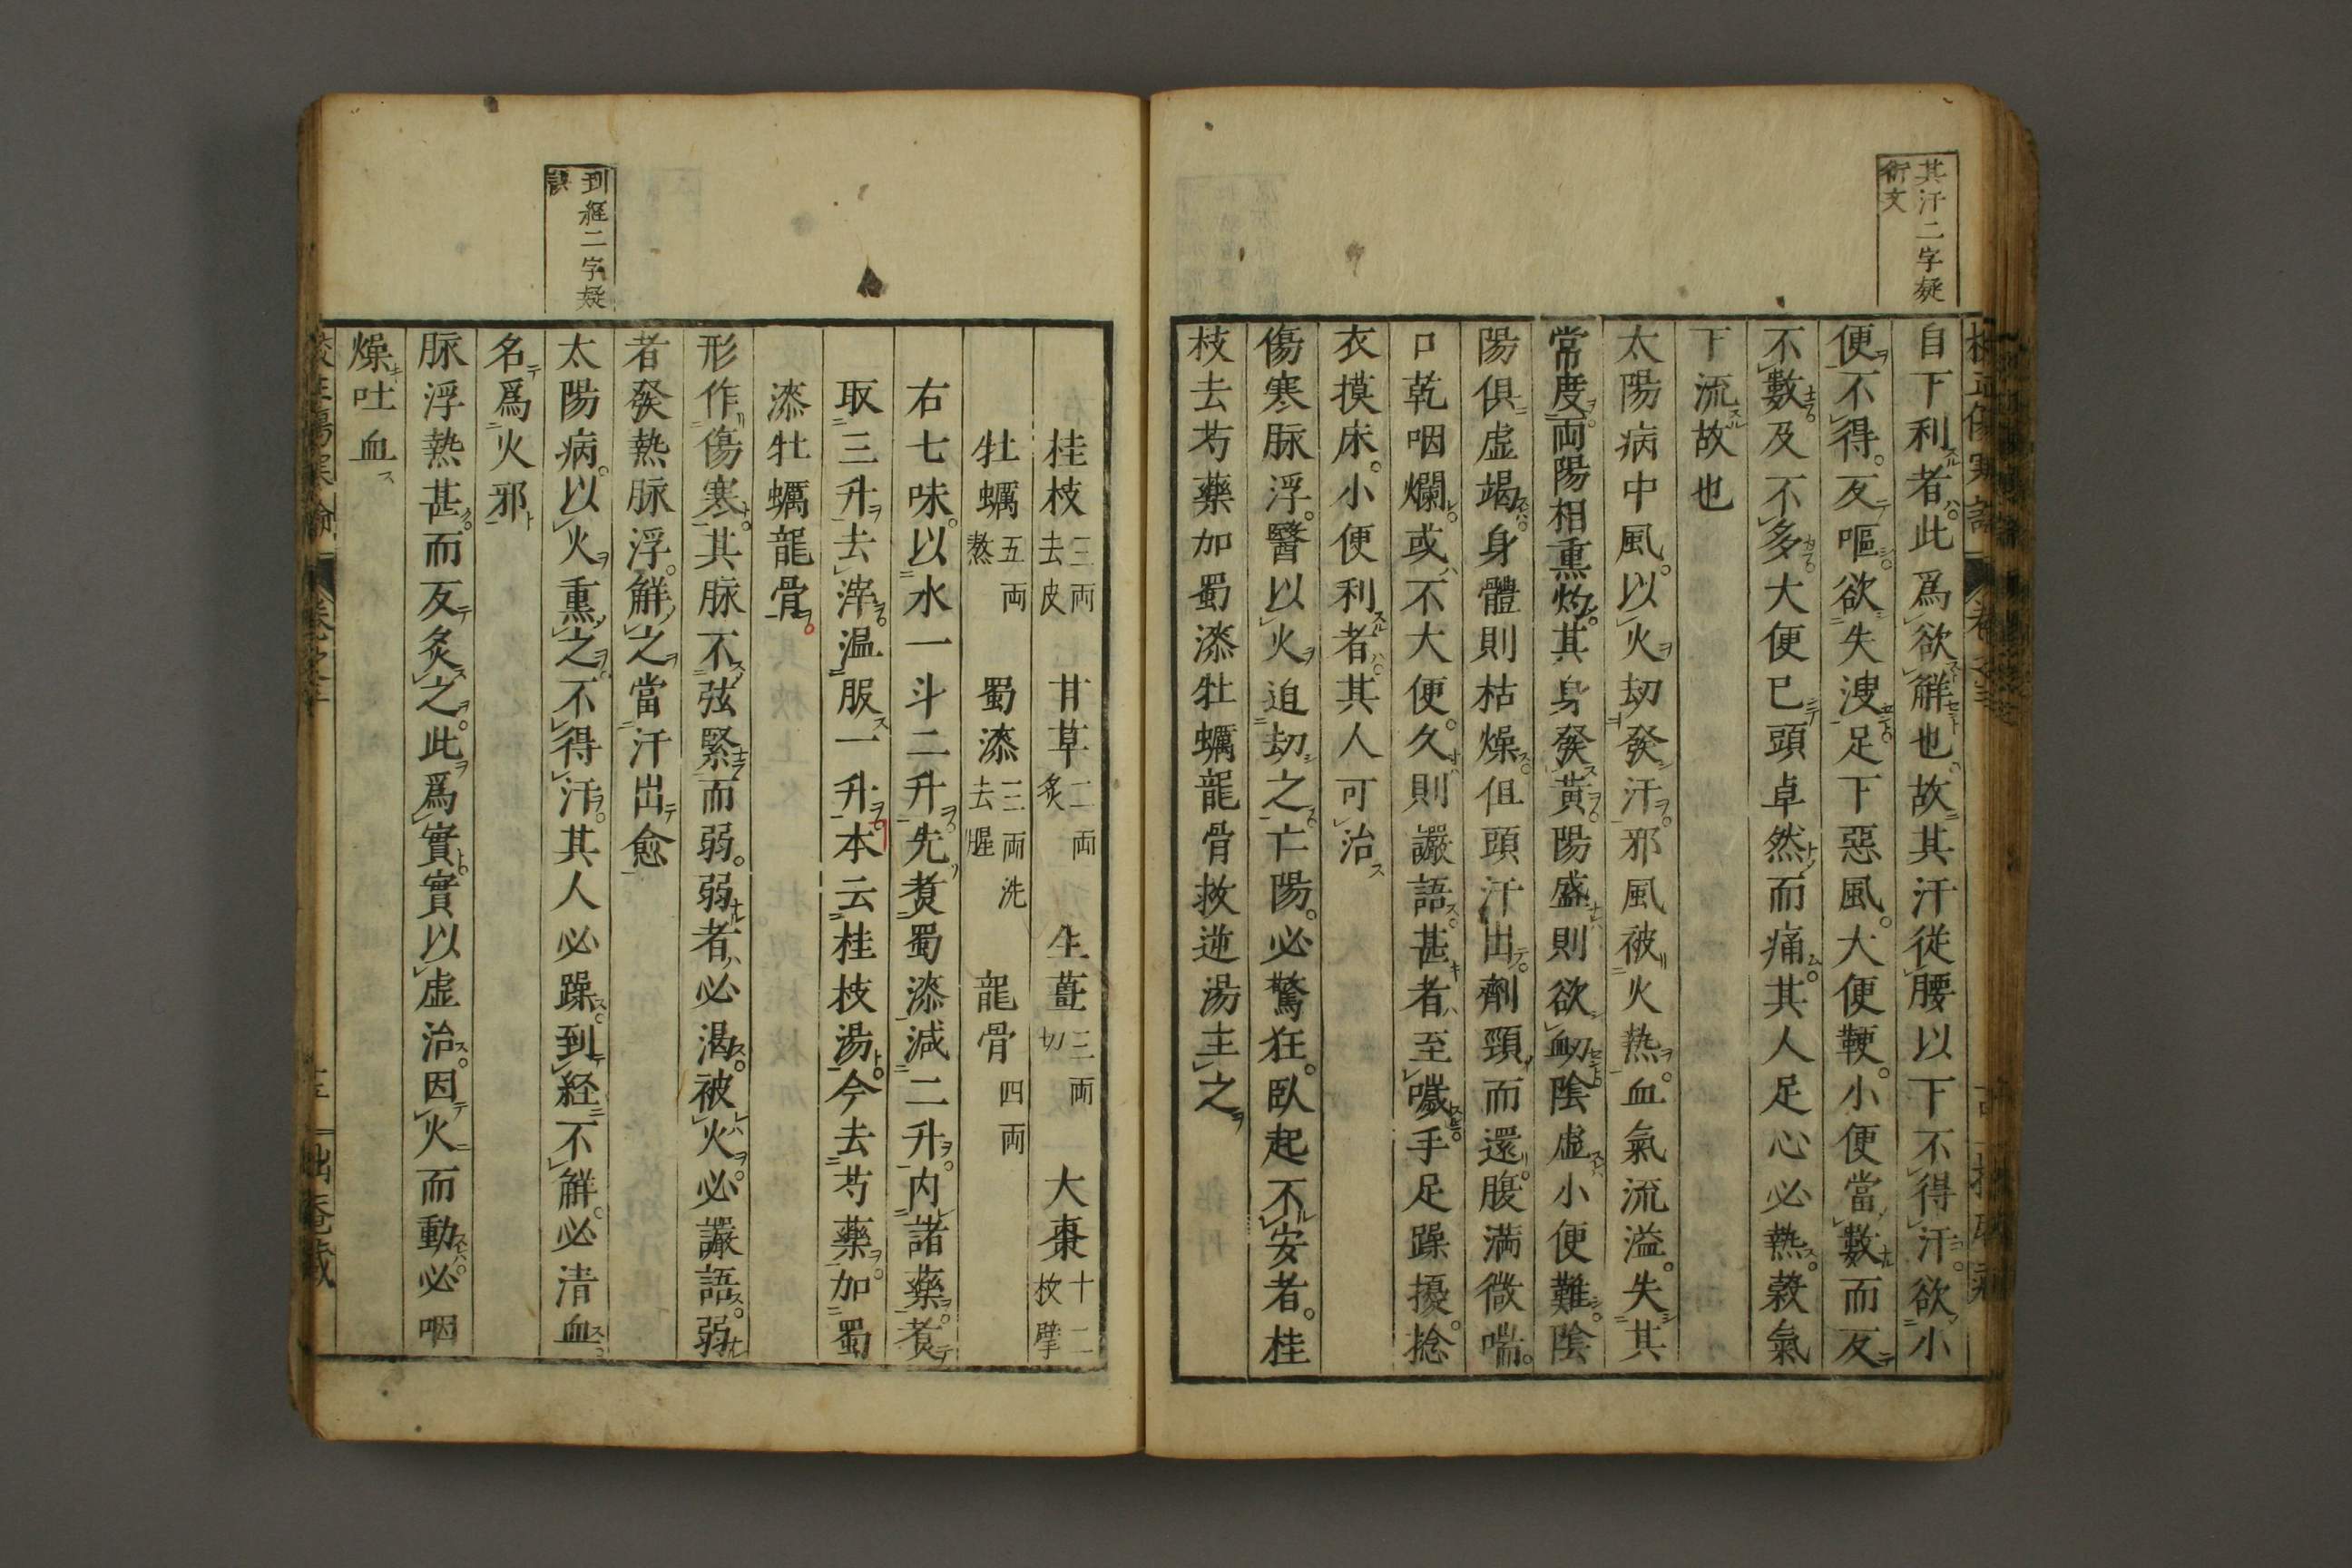 其汗二字疑
衍文
自下利者此爲欲解也故其汗從腰以下不得汗欲小
便不得反嘔欲失溲足下惡風大便鞕小便當數而反
不數及不多大便已頭卓然而痛其人足心必熱穀氣
下流故也
太陽病中風以火劫發汗邪風被火熱血氣流溢失其
常度両陽相熏灼其身發黃陽盛則欲衂陰虛小便難陰
陽俱虛竭身體則枯燥但頭汗出劑頸而還腹満微喘
口乾咽爛或不大便久則讝語甚者至噦手足躁擾捻
衣摸床小便利者其人可治
傷寒脉浮醫以火迫劫之亡陽必驚狂臥起不安者桂
枝去芍藥加蜀漆牡蠣龍骨救逆湯主之
到經二字疑
誤
桂枝三両去皮 甘草二両炙 生薑三両切 大棗十二枚擘
牡蠣五両熬 蜀漆三両洗去腥 龍骨四両
右七味以水一斗二升先煑蜀漆減二升内諸藥煑
取三升去滓温服一升本云桂枝湯今去芍藥加蜀
漆牡蠣龍骨
形作傷寒其脉不弦緊而弱弱者必渴被火必讝語弱
者發熱脉浮解之當汗出愈
太陽病以火熏之不得汗其人必躁到経不解必清血
名爲火邪
脉浮熱甚而反炙之此爲實實以虛治因火而動必咽
燥吐血